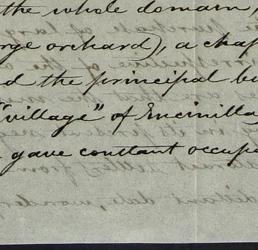 the whole domain,
rge orchard), a chap
d the principal bu
"village" of Encinilla
gave constant occup